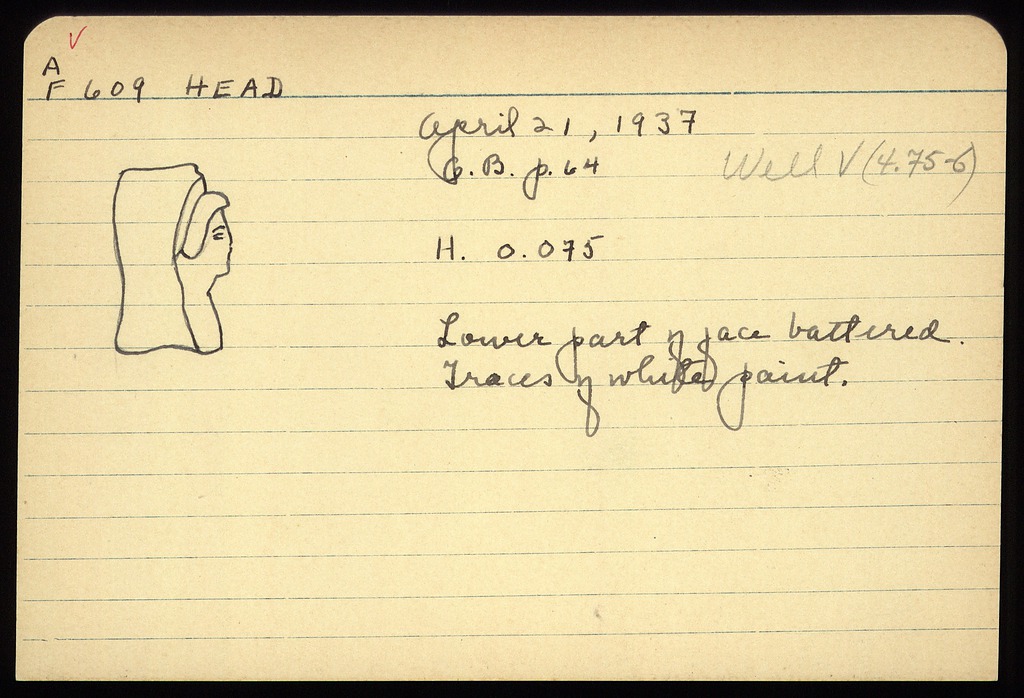 V
A
F 609 HEAD
April 21, 1937
G.B. p. 64 Well V (4.75-6)
H. 0.075
Lower part of face battered.
Traces of white paint.